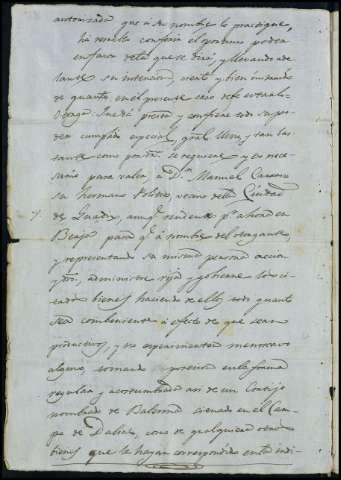 autorizada que à su nombre lo practique,
ha resuelto conferir el poder
en favor de la que se dirá, y llevando ade
lante su intencion, cierto y bien
de quanto en el presente caso debe
Otorga: Que dá presta y confiere todo su po-
der cumplido especial, gral y tan bas
tante como por dro. se requiere y es nece-
sario para valer, à Dn. Manuel
su hermano Politico, vecino de la Ciudad
de Guadix, aunq.e residente pr. ahora en
Berja para q.e à nombre del otorgante,
y representando su misma persona accion
y dro, administre rija y gobierne los ci-
tados bienes haciendo de ellos todo quanto
sea combeniente à efecto de que sean
productivos, y no esperimenten menoscavo
alguno, tomando posesion en la forma
regular y acostumbrada asi de un Cortijo
nombrado de Balerma situado en el Cam-
po de Dalias, como de qualquiera otros
bienes que le hayan correspondido en la indi-